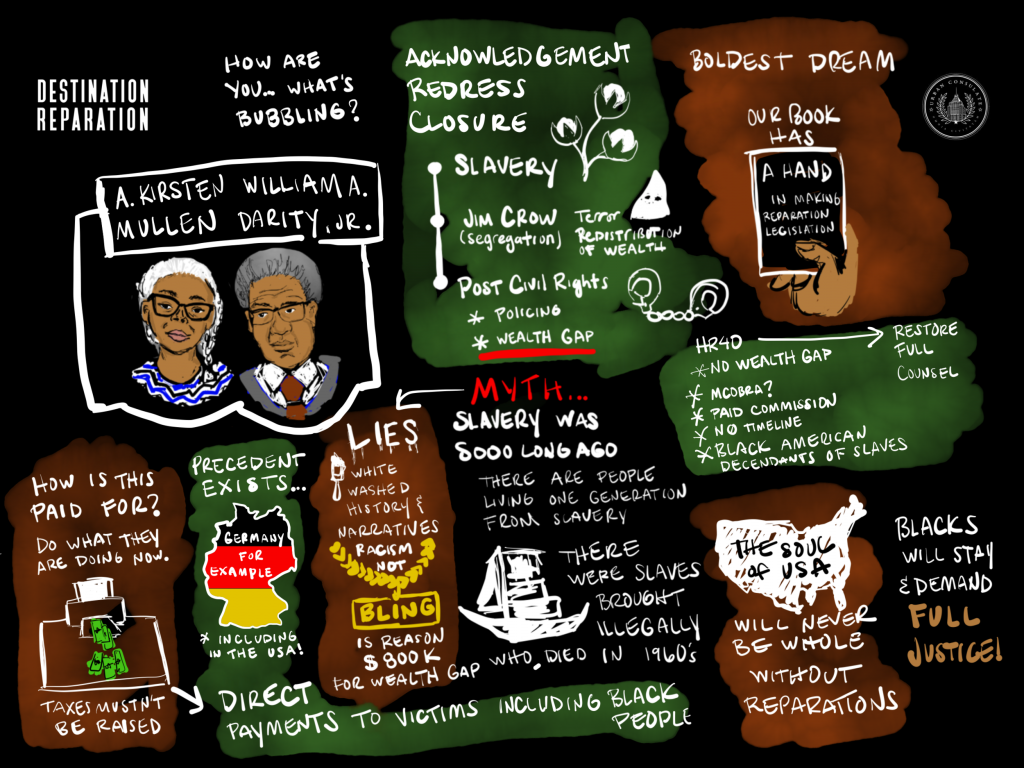 DESTINATION
REPARATION
HOW ARE
YOU... WHAT'S
BUBBLING?
A. KIRSTEN WILLIAM A.
MULLEN DARITY, JR.
ACKNOWLEDGEMENT
REDRESS
CLOSURE
SLAVERY
JIM CROW
(segregation)
Terror
REDISTRIBUTION
OF WEALTH
POST CIVIL RIGHTS
* POLICING
* WEALTH GAP
BOLDEST DREAM
OUR BOOK
HAS
A HAND
IN MAKING
REPARATION
LEGISLATION
HR40
* NO WEALTH GAP
* MCOBRA?
* PAID COMMISSION
* NO TIMELINE
* BLACK AMERICAN
DECENDANTS OF SLAVES
RESTORE
FULL
COUNSEL
MYTH...
SLAVERY WAS
SOOO LONG AGO
THERE ARE PEOPLE
LIVING ONE GENERATION
FROM SLAVERY
THERE
WERE SLAVES
BROUGHT
ILLEGALLY
WHO DIED IN 1960's
LIES
WHITE
WASHED
HISTORY &
NARRATIVES
RACISM
NOT
BLING
IS REASON
$800K
FOR WEALTH GAP
PRECEDENT
EXISTS...
GERMANY
FOR
EXAMPLE
* INCLUDING
IN THE USA!
HOW IS THIS
PAID FOR?
DO WHAT THEY
ARE DOING NOW.
TAXES MUSTN'T
BE RAISED
DIRECT
PAYMENTS TO VICTIMS INCLUDING BLACK
PEOPLE
THE SOUL
of USA
WILL NEVER
BE WHOLE
WITHOUT
REPARATIONS
BLACKS
WILL STAY
& DEMAND
FULL
JUSTICE!